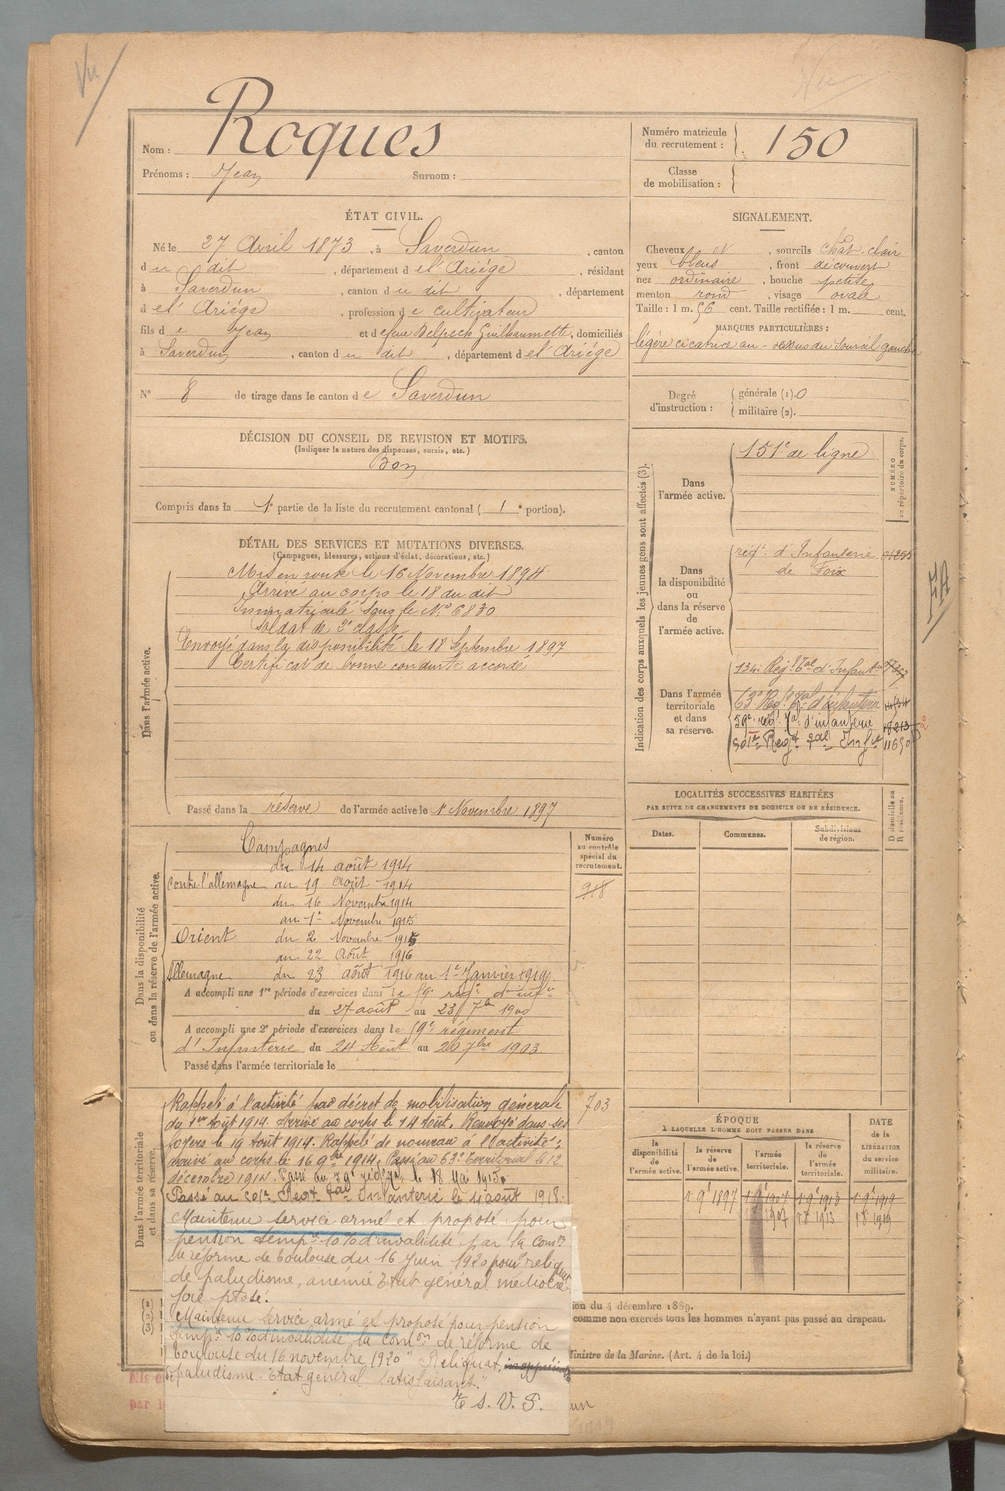 Vu
Roques
Nom :
Prénoms : Jean Surnom :
Numéro matricule du recrutement : 150
Classe de mobilisation :
ÉTAT CIVIL.
Né le 27 Avril 1873, à Saverdun, canton
du dit, département de l'Ariége, résidant
à Saverdun, canton du dit, département
de l'Ariége, profession de cultivateur
fils de Jean et de feue Delpech Guilhaumette, domiciliés
à Saverdun, canton du dit, département de l'Ariége
N° 8 de tirage dans le canton de Saverdun
SIGNALEMENT.
Cheveux et, sourcils chât. clair
yeux bleus, front découvert
nez ordinaire, bouche petite
menton rond, visage ovale
Taille : 1 m. 56 cent. Taille rectifiée : 1 m. cent.
MARQUES PARTICULIÈRES :
légère cicatrice au-dessus du sourcil gauche
Degré d'instruction : générale (1). 0
militaire (2).
DÉCISION DU CONSEIL DE REVISION ET MOTIFS.
(Indiquer la nature des dispenses, sursis, etc.)
Bon
Compris dans la 1e partie de la liste du recrutement cantonal ( 1e portion).
DÉTAIL DES SERVICES ET MUTATIONS DIVERSES.
(Campagnes, blessures, actions d'éclat, décorations, etc.)
Dans l'armée active.
Mis en route le 16 Novembre 1894
Arrivé au corps le 18 du dit
Immatriculé sous le N° 6830
Soldat de 2e classe
Envoyé dans la disponibilité le 18 Septembre 1897
Certificat de bonne conduite accordé
Passé dans la réserve de l'armée active le 1r Novembre 1897
Indication des corps auxquels les jeunes gens sont affectés (3).
NUMÉRO au répertoire du corps.
Dans l'armée active.
151e de ligne
Dans la disponibilité ou dans la réserve de l'armée active.
régt d'Infanterie
de Foix
Dans l'armée territoriale et dans sa réserve.
134e Régt Tal d'Infantie
63e Regt Tal d'infanterie
59e régt Tal d'infanterie
501e Regt Tal Infie
FA
Dans la disponibilité ou dans la réserve de l'armée active.
Numéro au contrôle spécial du recrutement.
918
Campagnes
du 14 août 1914
Contre l'allemagne au 19 Août 1914
du 16 Novembre 1914
au 1er Novembre 1915
Orient du 2 Novembre 1915
au 22 Août 1916
Allemagne du 23 août 1916 au 1er Janvier 1919
A accompli une 1re période d'exercices dans le 59e régt d'infie
du 27 août au 23 7bre 1900
A accompli une 2e période d'exercices dans le 59e régiment
d'Infanterie du 24 Août au 20 7bre 1903
Passé dans l'armée territoriale le
LOCALITÉS SUCCESSIVES HABITÉES
PAR SUITE DE CHANGEMENTS DE DOMICILE OU DE RÉSIDENCE.
Dates. Communes. Subdivisions de région.
D domicile ou R résidence.
Dans l'armée territoriale et dans sa réserve.
703
Rappelé à l'activité par décret de mobilisation générale
du 1er Août 1914. Arrivé au corps le 14 Août. Renvoyé dans ses
foyers le 19 Août 1914. Rappelé de nouveau à l'activité,
arrivé au corps le 16 9bre 1914. Passé au 63e territorial le 12
décembre 1914. Passé au 59e régt Tal le 18 Mai 1915.
Passé au 501e Regt Tal Infanterie le 4 août 1918.
Maintenu service armé et proposé pour
pension tempre 10% d'invalidité par la Comon
de réforme de Toulouse du 16 Juin 1920 pour reliquat
de paludisme, anémie Etat général médiocre
foie ptosé.
Maintenu service armé et proposé pour pension
tempre 10% d'invalidité la Comon de réforme de
Toulouse du 16 novembre 1920 " Reliquat
paludisme Etat général satisfaisant."
T. S. V. P.
ÉPOQUE
À LAQUELLE L'HOMME DOIT PASSER DANS
DATE de la LIBÉRATION du service militaire.
la disponibilité de l'armée active.
la réserve de l'armée active.
l'armée territoriale.
la réserve de l'armée territoriale.
1r 9e 1897
1907
1913
1919
ion du 4 décembre 1889.
comme non exercés tous les hommes n'ayant pas passé au drapeau.
Ministre de la Marine. (Art. 4 de la loi.)